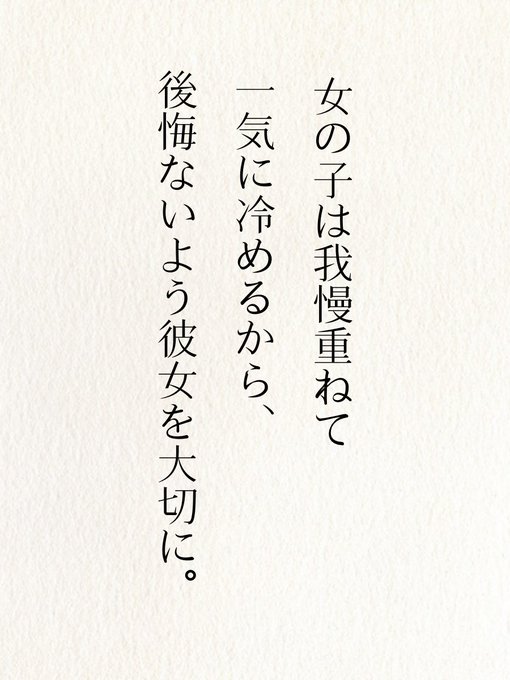 女の子は我慢重ねて
一気に冷めるから、
後悔ないよう彼女を大切に。